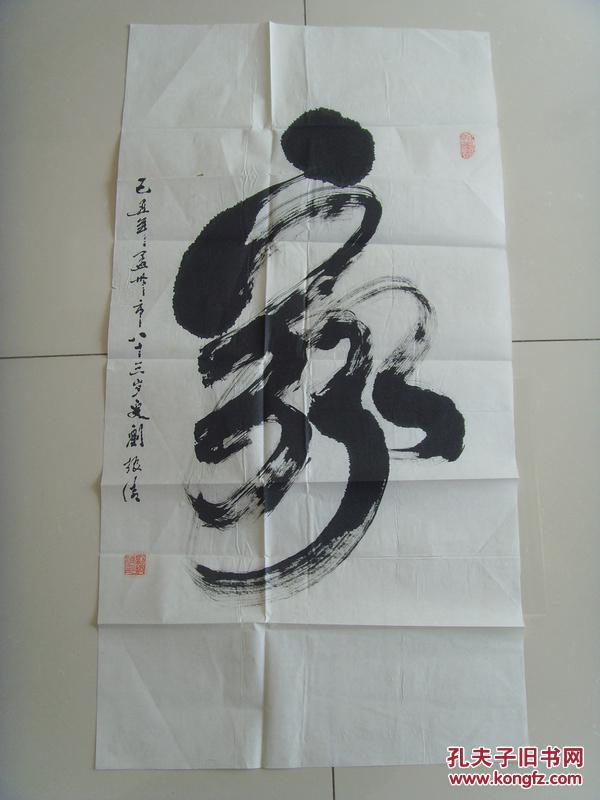 家
己丑年孟州市八十三岁叟劉振
孔夫子旧书网
www.kongfz.com